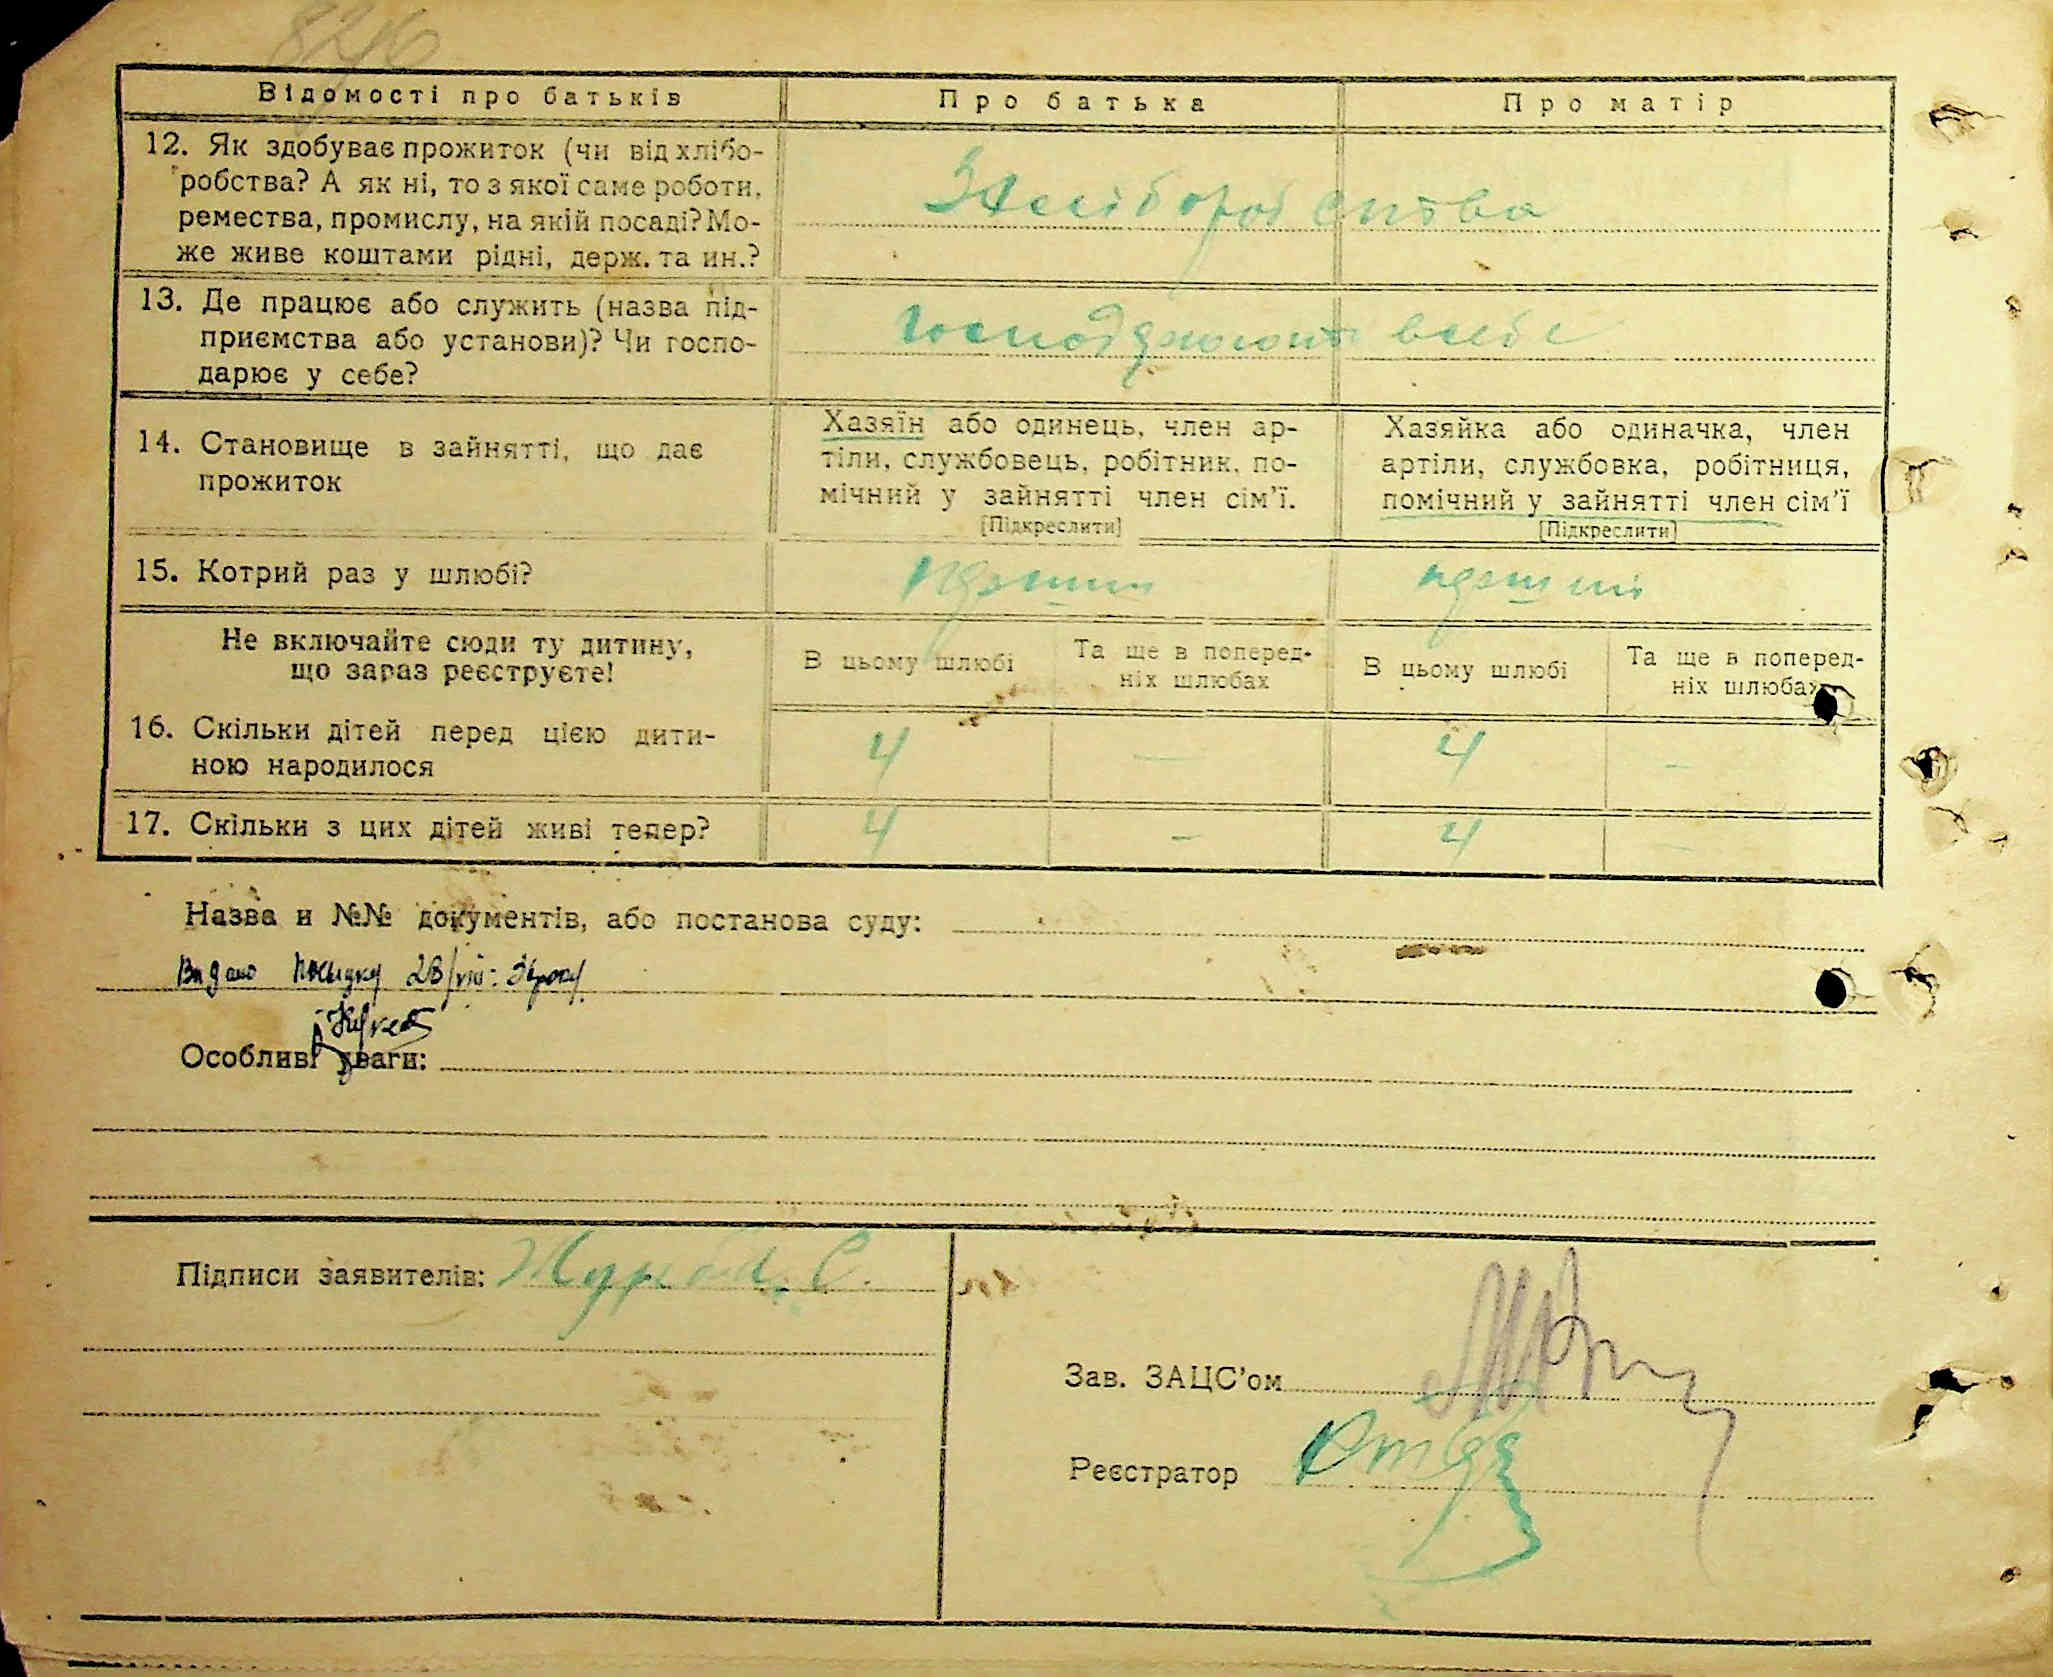 8246
Відомості про батьків Про батька Про матір
12. Як здобуває прожиток (чи від хлібо-
робства? А як ні, то з якої саме роботи,
ремества, промислу, на якій посаді? Мо-
же живе коштами рідні, держ. та ин.?
З хліборобства
13. Де працює або служить (назва під-
приємства або установи)? Чи госпо-
дарює у себе?
господарюють в себе
14. Становище в зайнятті, що дає
прожиток
Хазяїн або одинець, член ар-
тіли, службовець, робітник, по-
мічний у зайнятті член сім'ї.
[Підкреслити]
Хазяйка або одиначка, член
артіли, службовка, робітниця,
помічний у зайнятті член сім'ї
[Підкреслити]
15. Котрий раз у шлюбі?
Не включайте сюди ту дитину,
що зараз реєструєте!
В цьому шлюбі Та ще в поперед-
ніх шлюбах
В цьому шлюбі Та ще в поперед-
ніх шлюбах
16. Скільки дітей перед цією дити-
ною народилося
4 — 4 —
17. Скільки з цих дітей живі тепер?
4 — 4 —
Назва и №№ документів, або постанова суду:
Видано 28/VIII
Особливі уваги:
Підписи заявителів: Журба С.
Зав. ЗАЦС'ом
Реєстратор